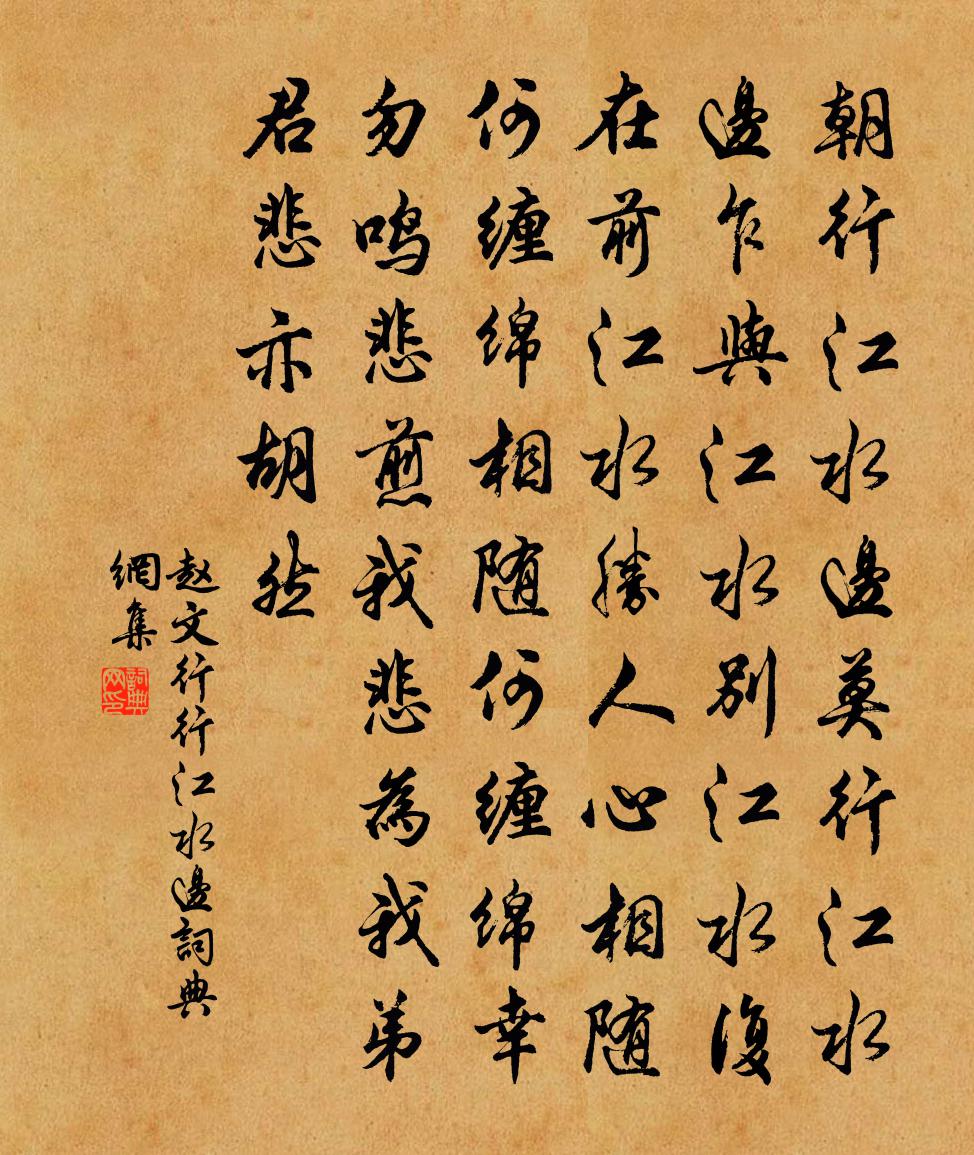 朝行江水邊莫行江水
邊乍與江水別江水復
在前江水勝人心相随
何缠绵相随何缠绵幸
勿鸣悲煎我悲為我弟
君悲亦胡然
赵文行行江水邊詞典
網集
詞典
网印